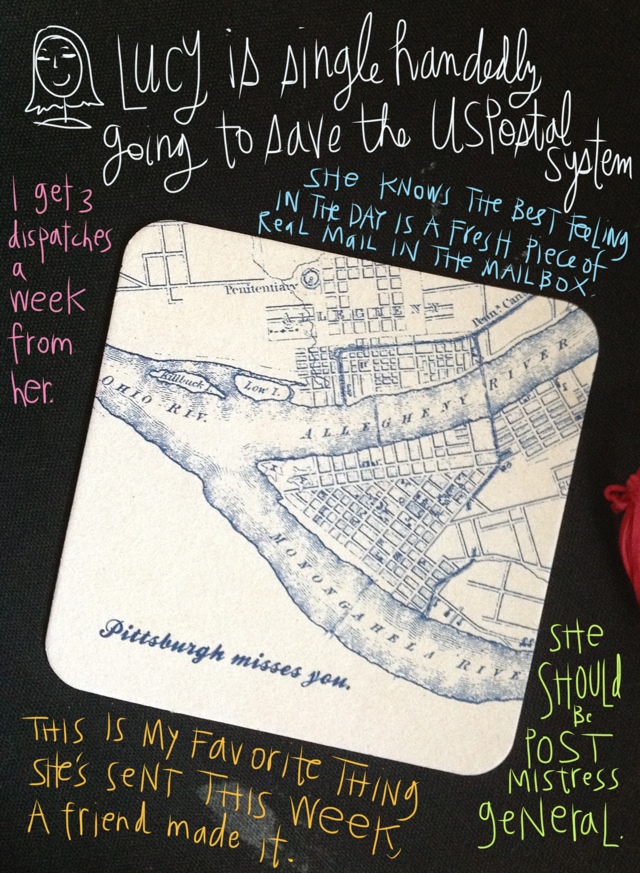 Lucy is single handedly
going to save the US Postal
system
SHE KNOWS THE BEST FEELING
IN THE DAY IS A FRESH PIECE OF
REAL MAIL IN THE MAILBOX.
I get 3
dispatches
a
week
from
her.
Penitentiary
ALLEGHENY
Penn.a Can
Killbuck
Low I.
OHIO RIV.
ALLEGHENY RIVER
MONONGAHELA RIVE
Pittsburgh misses you.
SHE
SHOULD
Be
POST
MISTRESS
GENERAL.
THIS IS MY FAVORITE THING
SHE'S SENT THIS WEEK
A friend made it.